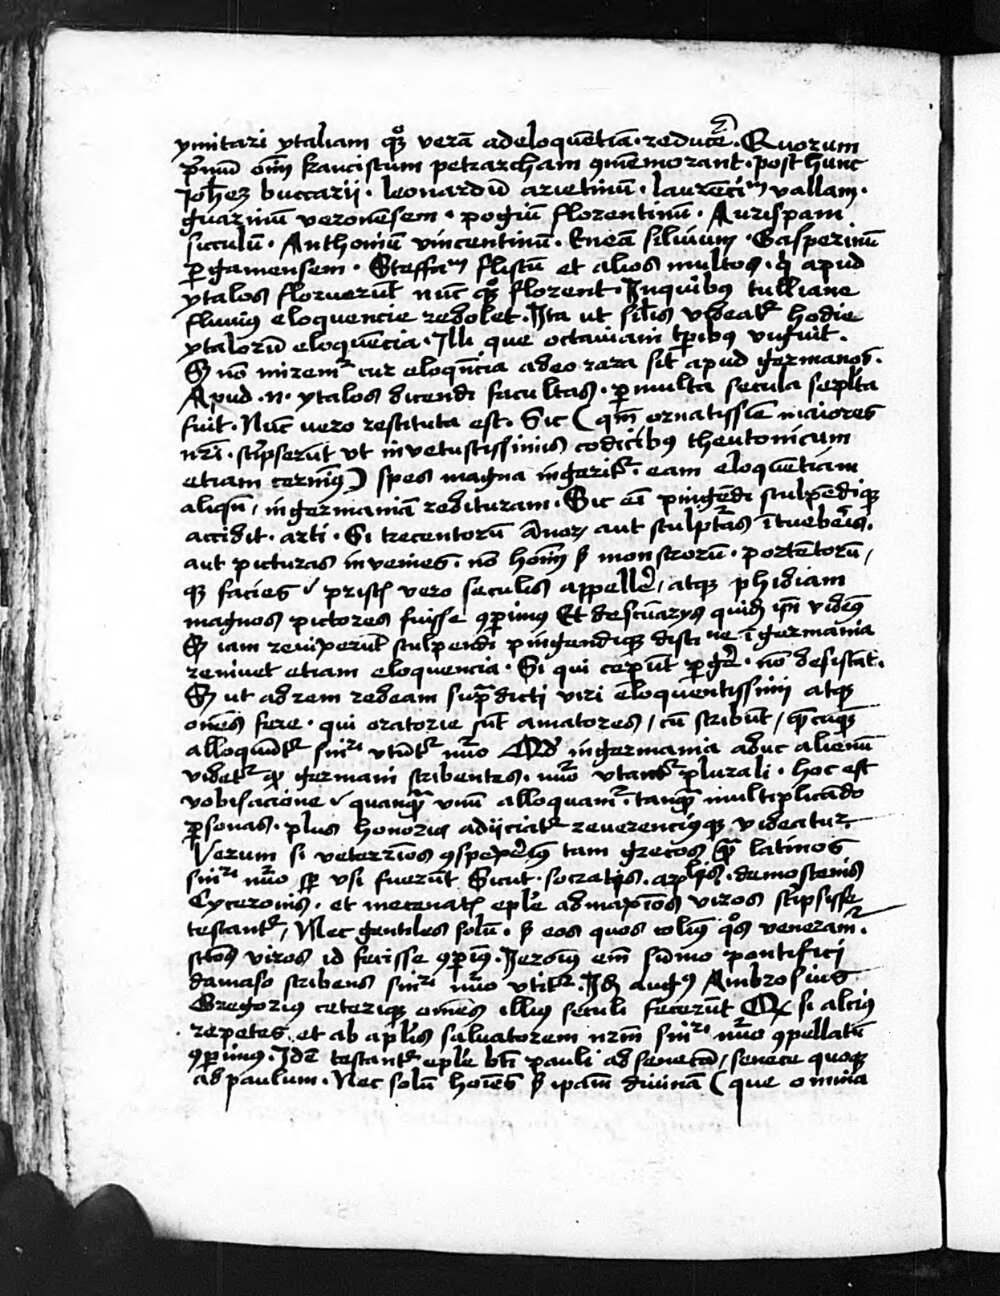 ymitari ytaliam qꝫ verā ad eloquētiā reducēt. Quorum
p̄mū om̄ franciscum petrarcham ꝯmēmorant. post hunc
Joh̄ez buccarii. leonardū aretinū. laurēciū vallam.
guarinū veronēsem. pogiū florentinū. Aurispam
siculū. Anthoniū vincentinū. Eneā siluium. Gasperinū
ꝑgamensem. Steffanū fliscū et alios multos. q apud
ytalos floruerūt nūc qꝫ florent. In quibꝯ tulliane
fluuiꝯ eloquencie redolet. Ita ut sil̄is videat᷑ hodie
ytalorū eloquēcia. Illi que octauiani tꝑibꝯ viguit.
Sꝫ nō mirem᷑ cur eloqn̄cia adeo rara sit apud germanos.
Apud .n. ytalos dicendi facultas. ꝑ multa secula sepl̄ta
fuit. Nūc vero restituta est. Sic (qm̄ ornatissīe maiores
nr̄i. sc̄pserūt ut in vetustissimis codicibꝯ theutonicum
etiam cernimꝯ) spes magna ingerit᷑. eam eloquētiam
aliqn̄, in germaniā redituram. Sic eī pingēdi sculpēdiqꝫ
accidit. arti. Si trecentorū ānoꝝ aut sculptas ītueberis.
aut picturas inuenies. nō hoīm sꝫ monstrorū. portētorū,
qꝫ facies. prisci vero seculis appelle, atqꝫ phidiam
magnos pictores fuisse ꝯꝑimꝯ Et
Sꝫ iam reuixerūt sculpendi pingendiqꝫ ī germania
reniuet etiam eloquencia. Si qui ceperūt ꝑgēt. nō desistāt.
Sꝫ ut ad rem redeam sup̄dicti viri eloquentissimi atqꝫ
omēs fere. qui oratorie sūt amatores, cū scribūt,
alloquūt᷑ sin᷑i utūt᷑ nūo in germania aduc alienū
videt᷑ qꝫ germani scribentes. nūo utant᷑ plurali. hoc est
vobisacione. quanqꝫ vnū alloquam᷑. tanqꝫ multiplicādo
ꝑsonas. plus honoris adijciat᷑ reuerenciusqꝫ videatur
Verum si veterrīos ꝯspexerimꝯ tam grecos qꝫ latinos
sin᷑i nūo sꝑ vsi fuerūt Sicut. socratis. demostenis
Cyceronis. et mecenatis epl̄e ad maxīos viros sc̄psisse
testant᷑, Nec gentiles solū. sꝫ eos quos colimꝯ qos veneram᷑.
sctos viros id fecisse ꝯꝑimꝯ. Jeroniꝯ em̄ sūmo pontifici
damaso scribens sin᷑i nūo vtit᷑. Id augꝯ Ambrosius
Gregorius ceteriqꝫ omēs illius seculi fecerūt Qꝫ si alcius
repetes et ab apl̄is saluatorem nr̄m sin᷑i nūo ꝯpellatū
ꝯꝑimus. Idē testant᷑ epl̄e bt̄i pauli ad senecā, senece quoqꝫ
ad paulum. Nec solū hoīes sꝫ ipam diuinā (que omnia